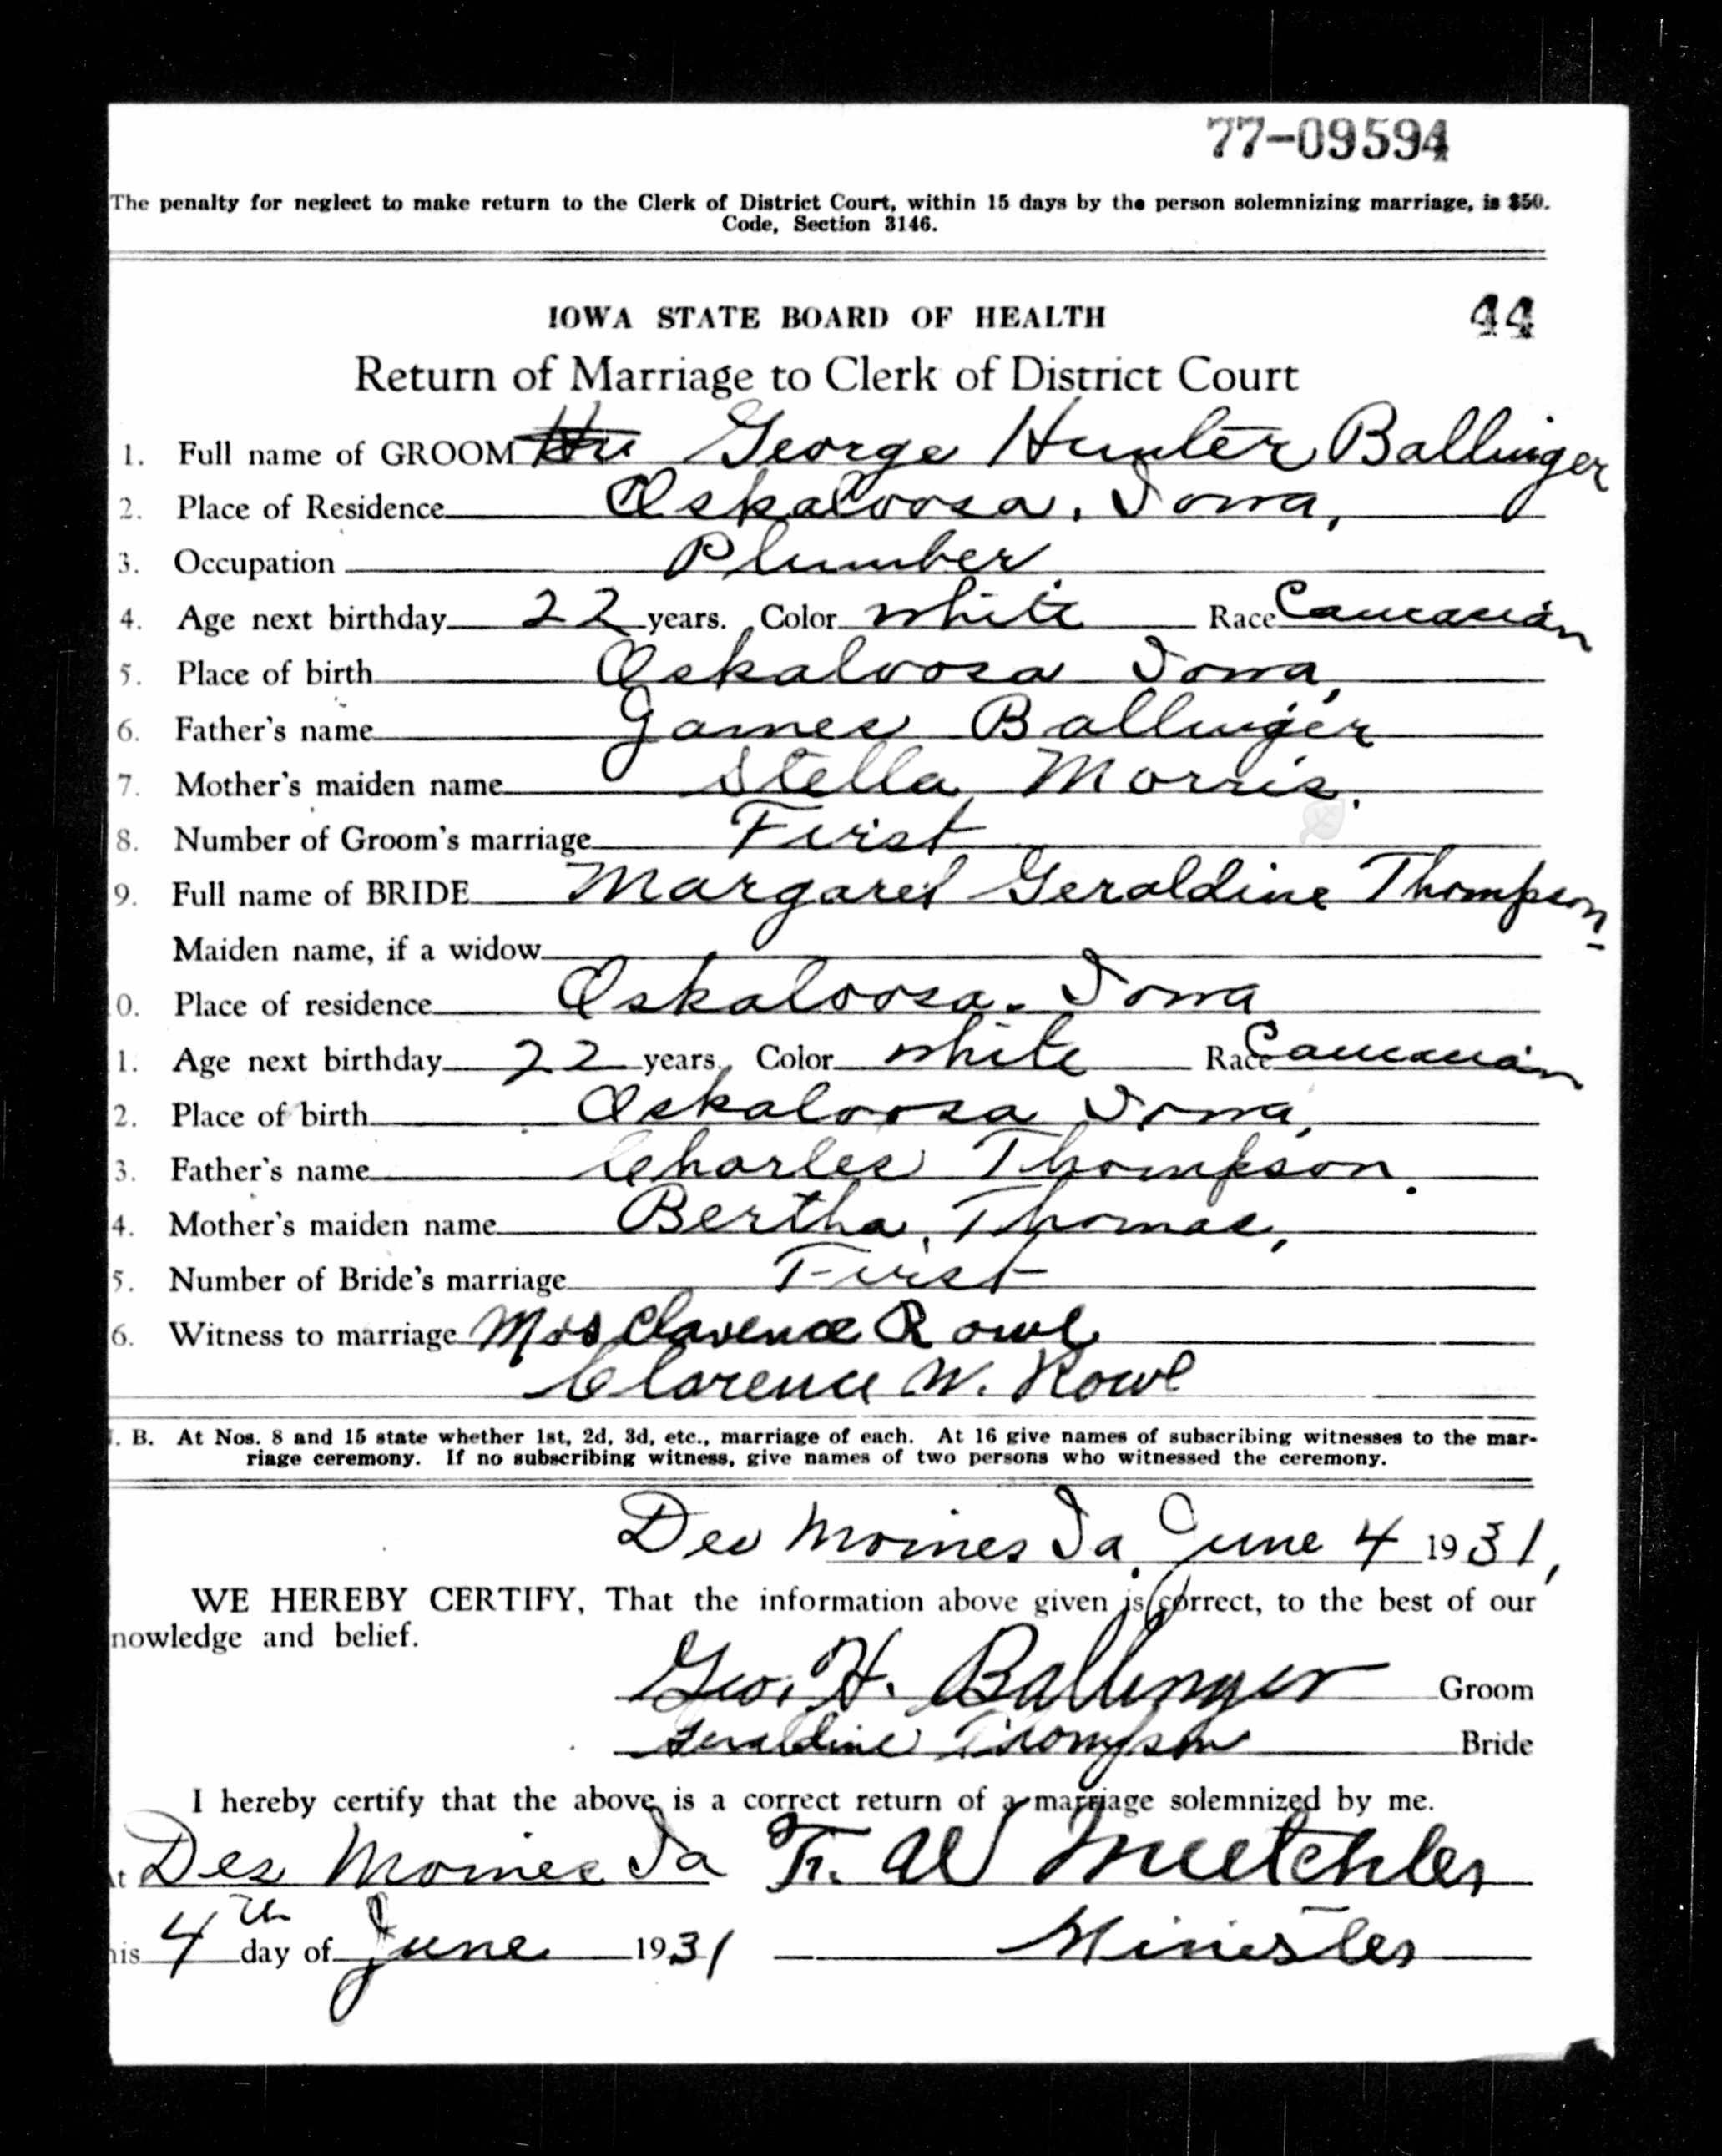 77-09594
The penalty for neglect to make return to the Clerk of District Court, within 15 days by the person solemnizing marriage, is $50.
Code, Section 3146.
IOWA STATE BOARD OF HEALTH 44
Return of Marriage to Clerk of District Court
1. Full name of GROOM George Hunter Ballinger
2. Place of Residence Oskaloosa, Iowa,
3. Occupation Plumber
4. Age next birthday 22 years. Color white Race Caucasian
5. Place of birth Oskaloosa Iowa,
6. Father's name James Ballinger
7. Mother's maiden name Stella Morris.
8. Number of Groom's marriage First
9. Full name of BRIDE Margaret Geraldine Thompson
Maiden name, if a widow
0. Place of residence Oskaloosa. Iowa
1. Age next birthday 22 years. Color white Race Caucasian
2. Place of birth Oskaloosa Iowa,
3. Father's name Charles Thompson.
4. Mother's maiden name Bertha Thomas,
5. Number of Bride's marriage First
6. Witness to marriage Mrs Clarence Rowl
Clarence W. Rowl
. B. At Nos. 8 and 15 state whether 1st, 2d, 3d, etc., marriage of each. At 16 give names of subscribing witnesses to the mar-
riage ceremony. If no subscribing witness, give names of two persons who witnessed the ceremony.
Des Moines Ia. June 4 1931,
WE HEREBY CERTIFY, That the information above given is correct, to the best of our
nowledge and belief.
Geo. H. Ballinger Groom
Geraldine Thompson Bride
I hereby certify that the above is a correct return of a marriage solemnized by me.
t Des Moines Ia Fr. W Mutchler
his 4th day of June 1931 Minister